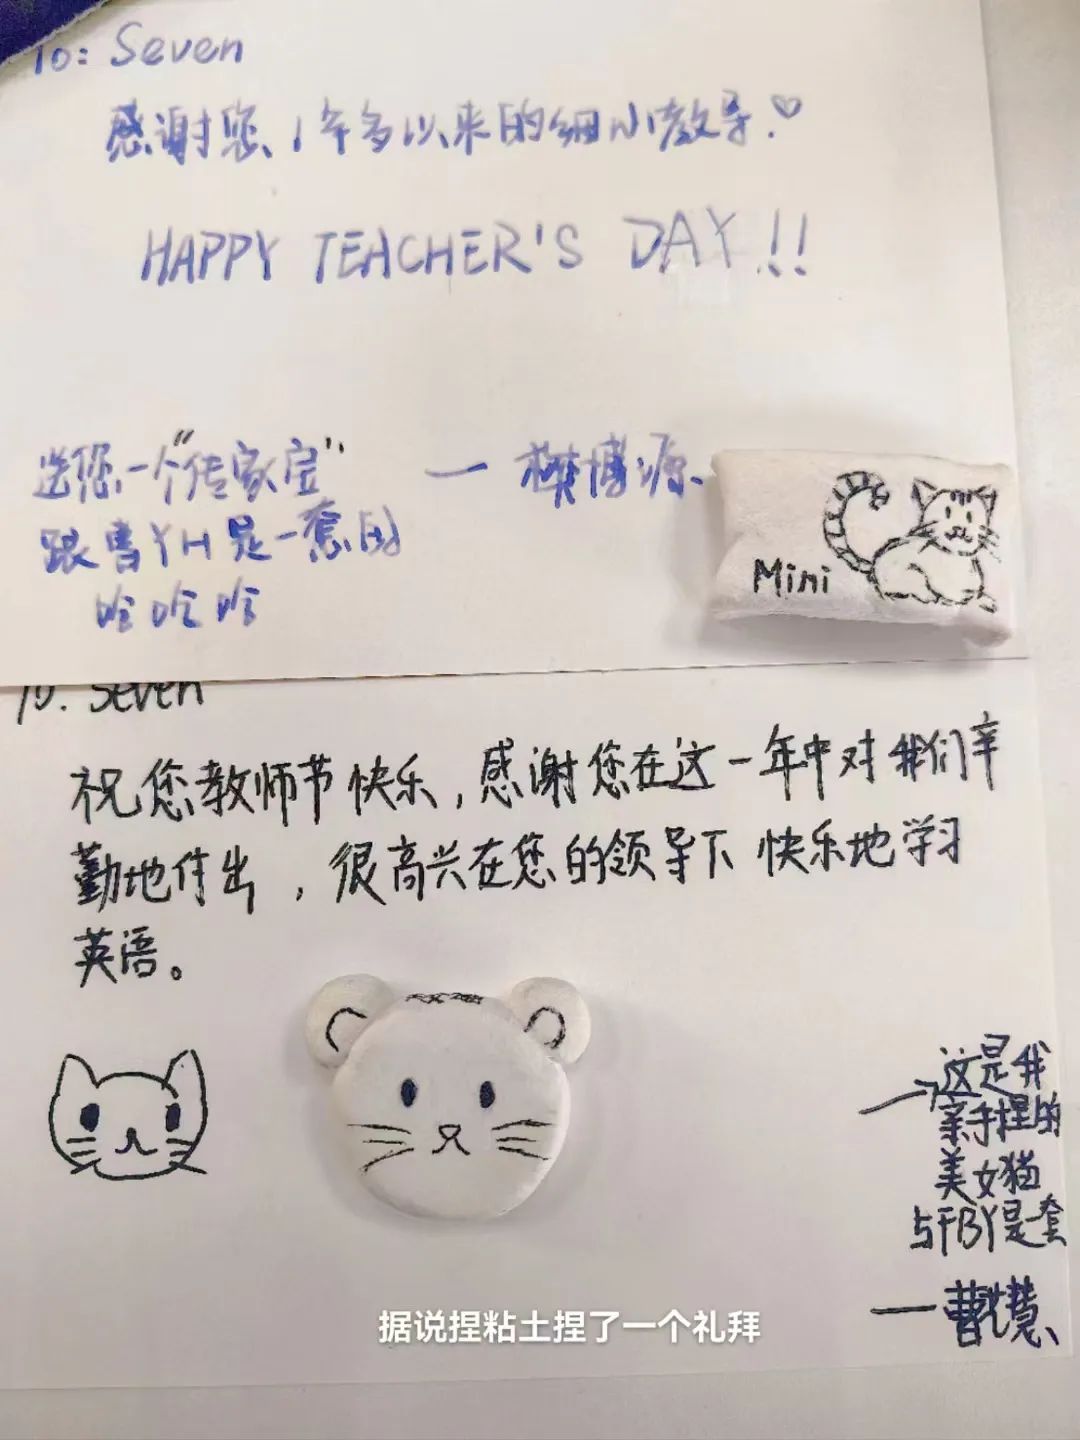 To: Seven
感谢您1年多以来的细心教导.♡
HAPPY TEACHER'S DAY!!
送您一个"传家宝"
跟曹YH是一套的
哈哈哈
一 樊博源
Mini
To. Seven
祝您教师节快乐,感谢您在这一年中对我们辛
勤地付出,很高兴在您的领导下快乐地学习
英语。
→这是我
亲手捏的
美女猫
与FBY是一套
一曹慧
据说捏粘土捏了一个礼拜